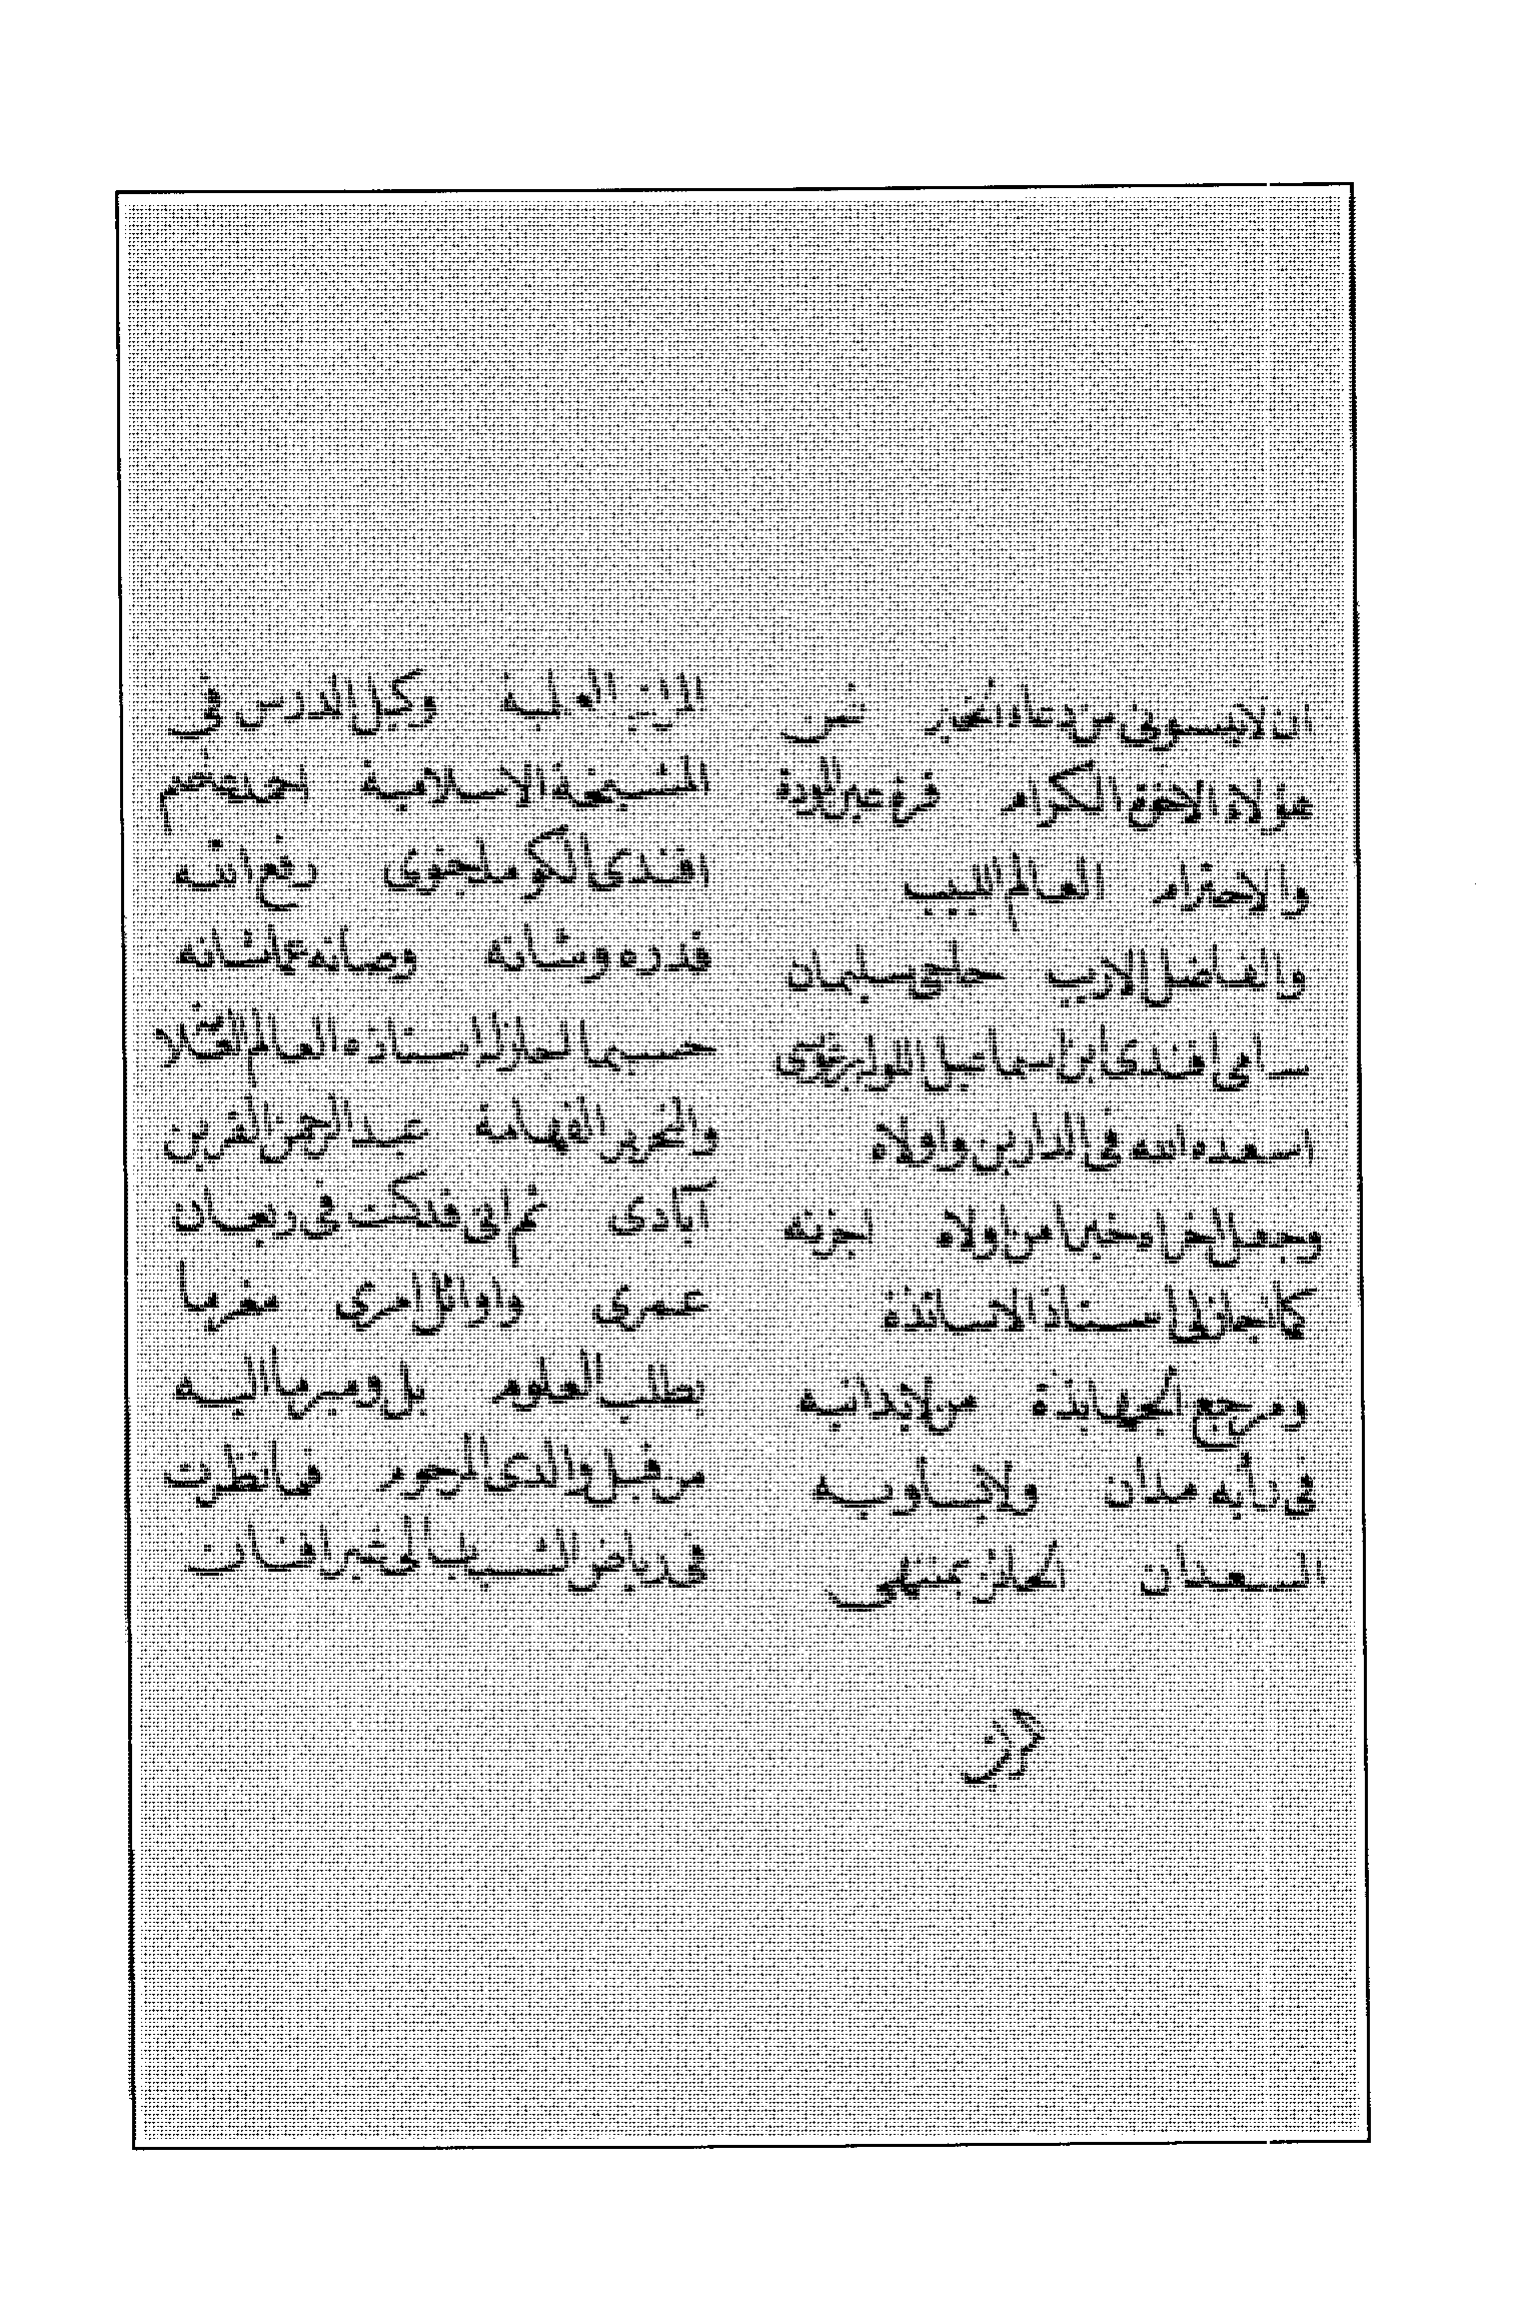 ان لاينسونى من دعاء الخير فمن
هؤلاء الاخوة الكرام قرة عين المودة
والاحترام العالم اللبيب
والفاضل الاريب حاجى سليمان
سامى افندى ابن اسماعيل
اسعده الله فى الدارين واولاه
وجعل اخراه خيرا من اولاه اجزته
كما اجازلى استاذ الاساتذة
ومرجع الجهابذة من لايدانيه
فى رأيه مدان ولا يساويه
السعدان الحائز بمنتهى
المراتب العلمية وكيل الدرس فى
المشيخة الاسلامية احمد عاصم
افندى الكوملجنوى رفع الله
قدره وشانه وصانه عما شانه
حسبما اجازله استاذه العالم العلا
والنحرير الفهامة عبد الرحمن القرين
آبادى ثم انى قد كنت فى ريعان
عمرى واوائل امرى مغرما
بطلب العلوم بل وميرما اليه
من قبل والدى المرحوم فما نظرت
فى رياض الشباب الى غير افنان
المراتب